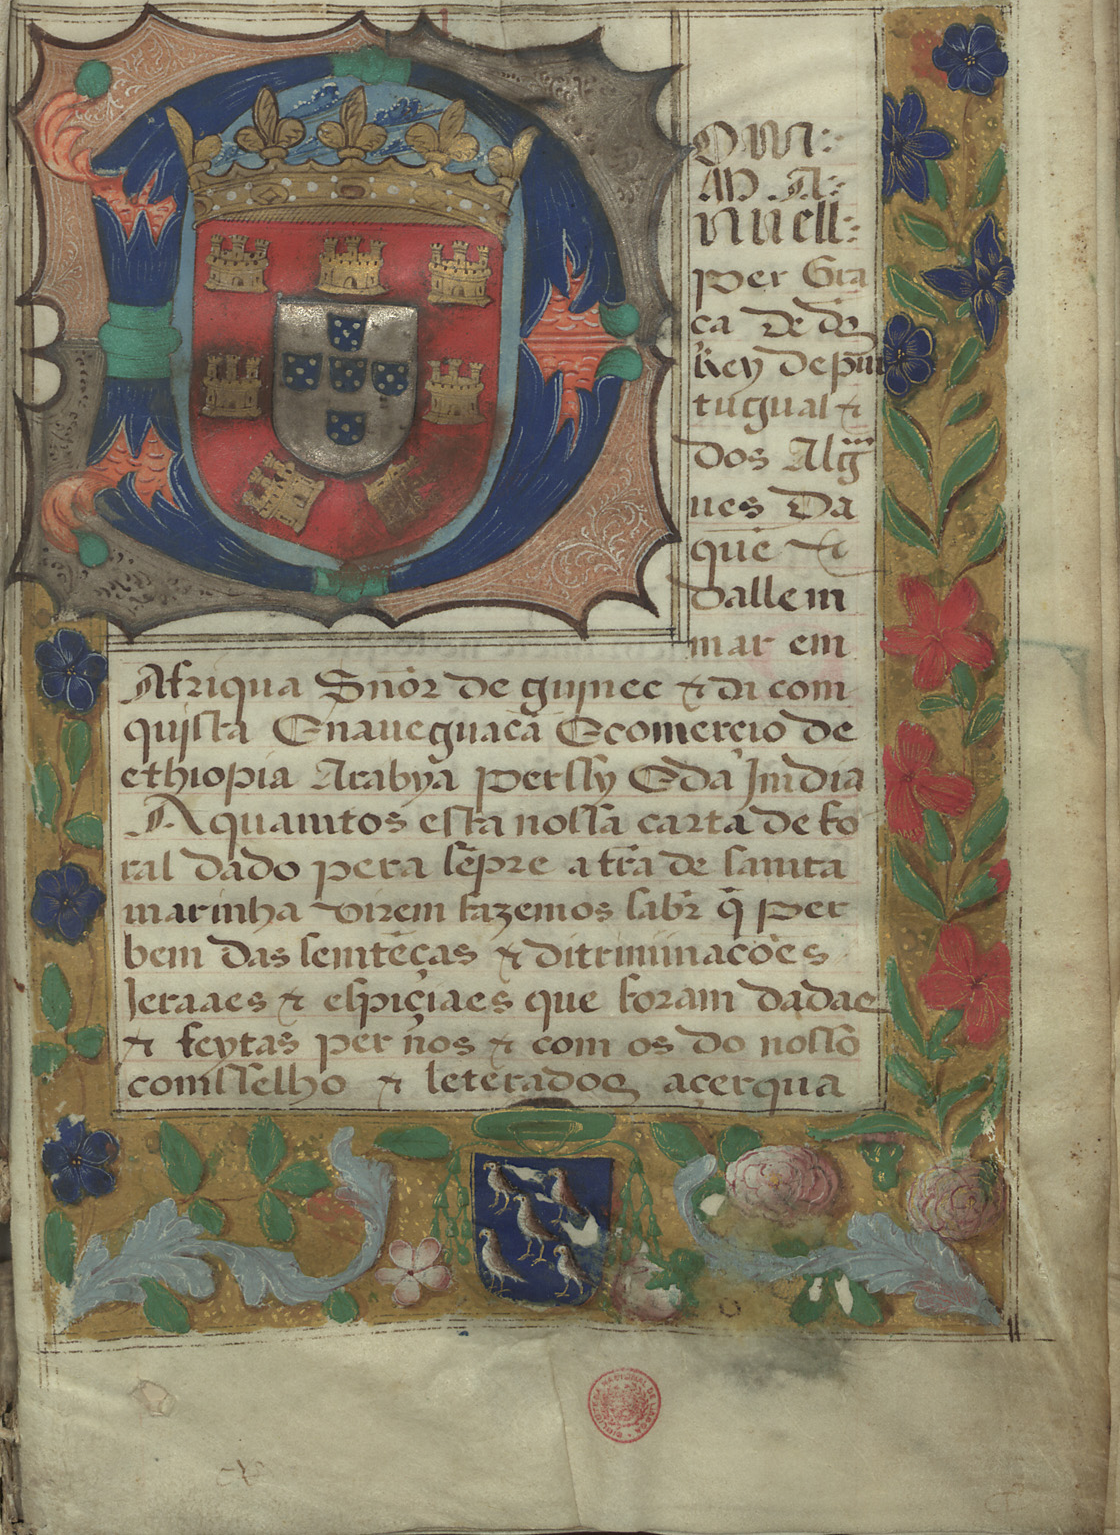 Dom
Ma
nuell
per Gra
ca de ds
Rey de purtugual &
dos Alg
ues Da
que &
dallem
mar em
Afriqua Snor de guynee & da com
quista E naueguacã E comercio de
ethiopia Arabya Perssy E da Jmdia
A quamtos esta nossa carta de fo
ral dado pera sẽpre a trã de samta
marinha virem fazemos sabr q̃ per
bem das semtẽças & ditriminacoẽs
Jeraaes & espiçiaes que foram dadas
& feytas per nos & com os do nosso
comsselho & leterados acerqua
BIBLIOTECA NACIONAL DE LISBOA